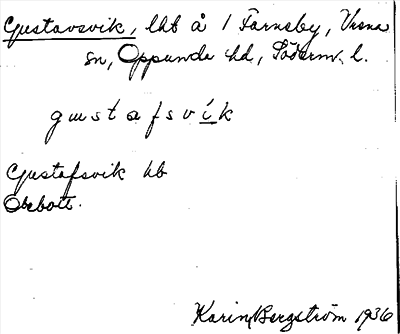 Gustavsvik, lht å 1 Farnsby, Vrena
sn, Oppunda hd, Söderm. l.
gustafsvík
Gustafsvik hb
Obebott.
Karin Bergström 1936